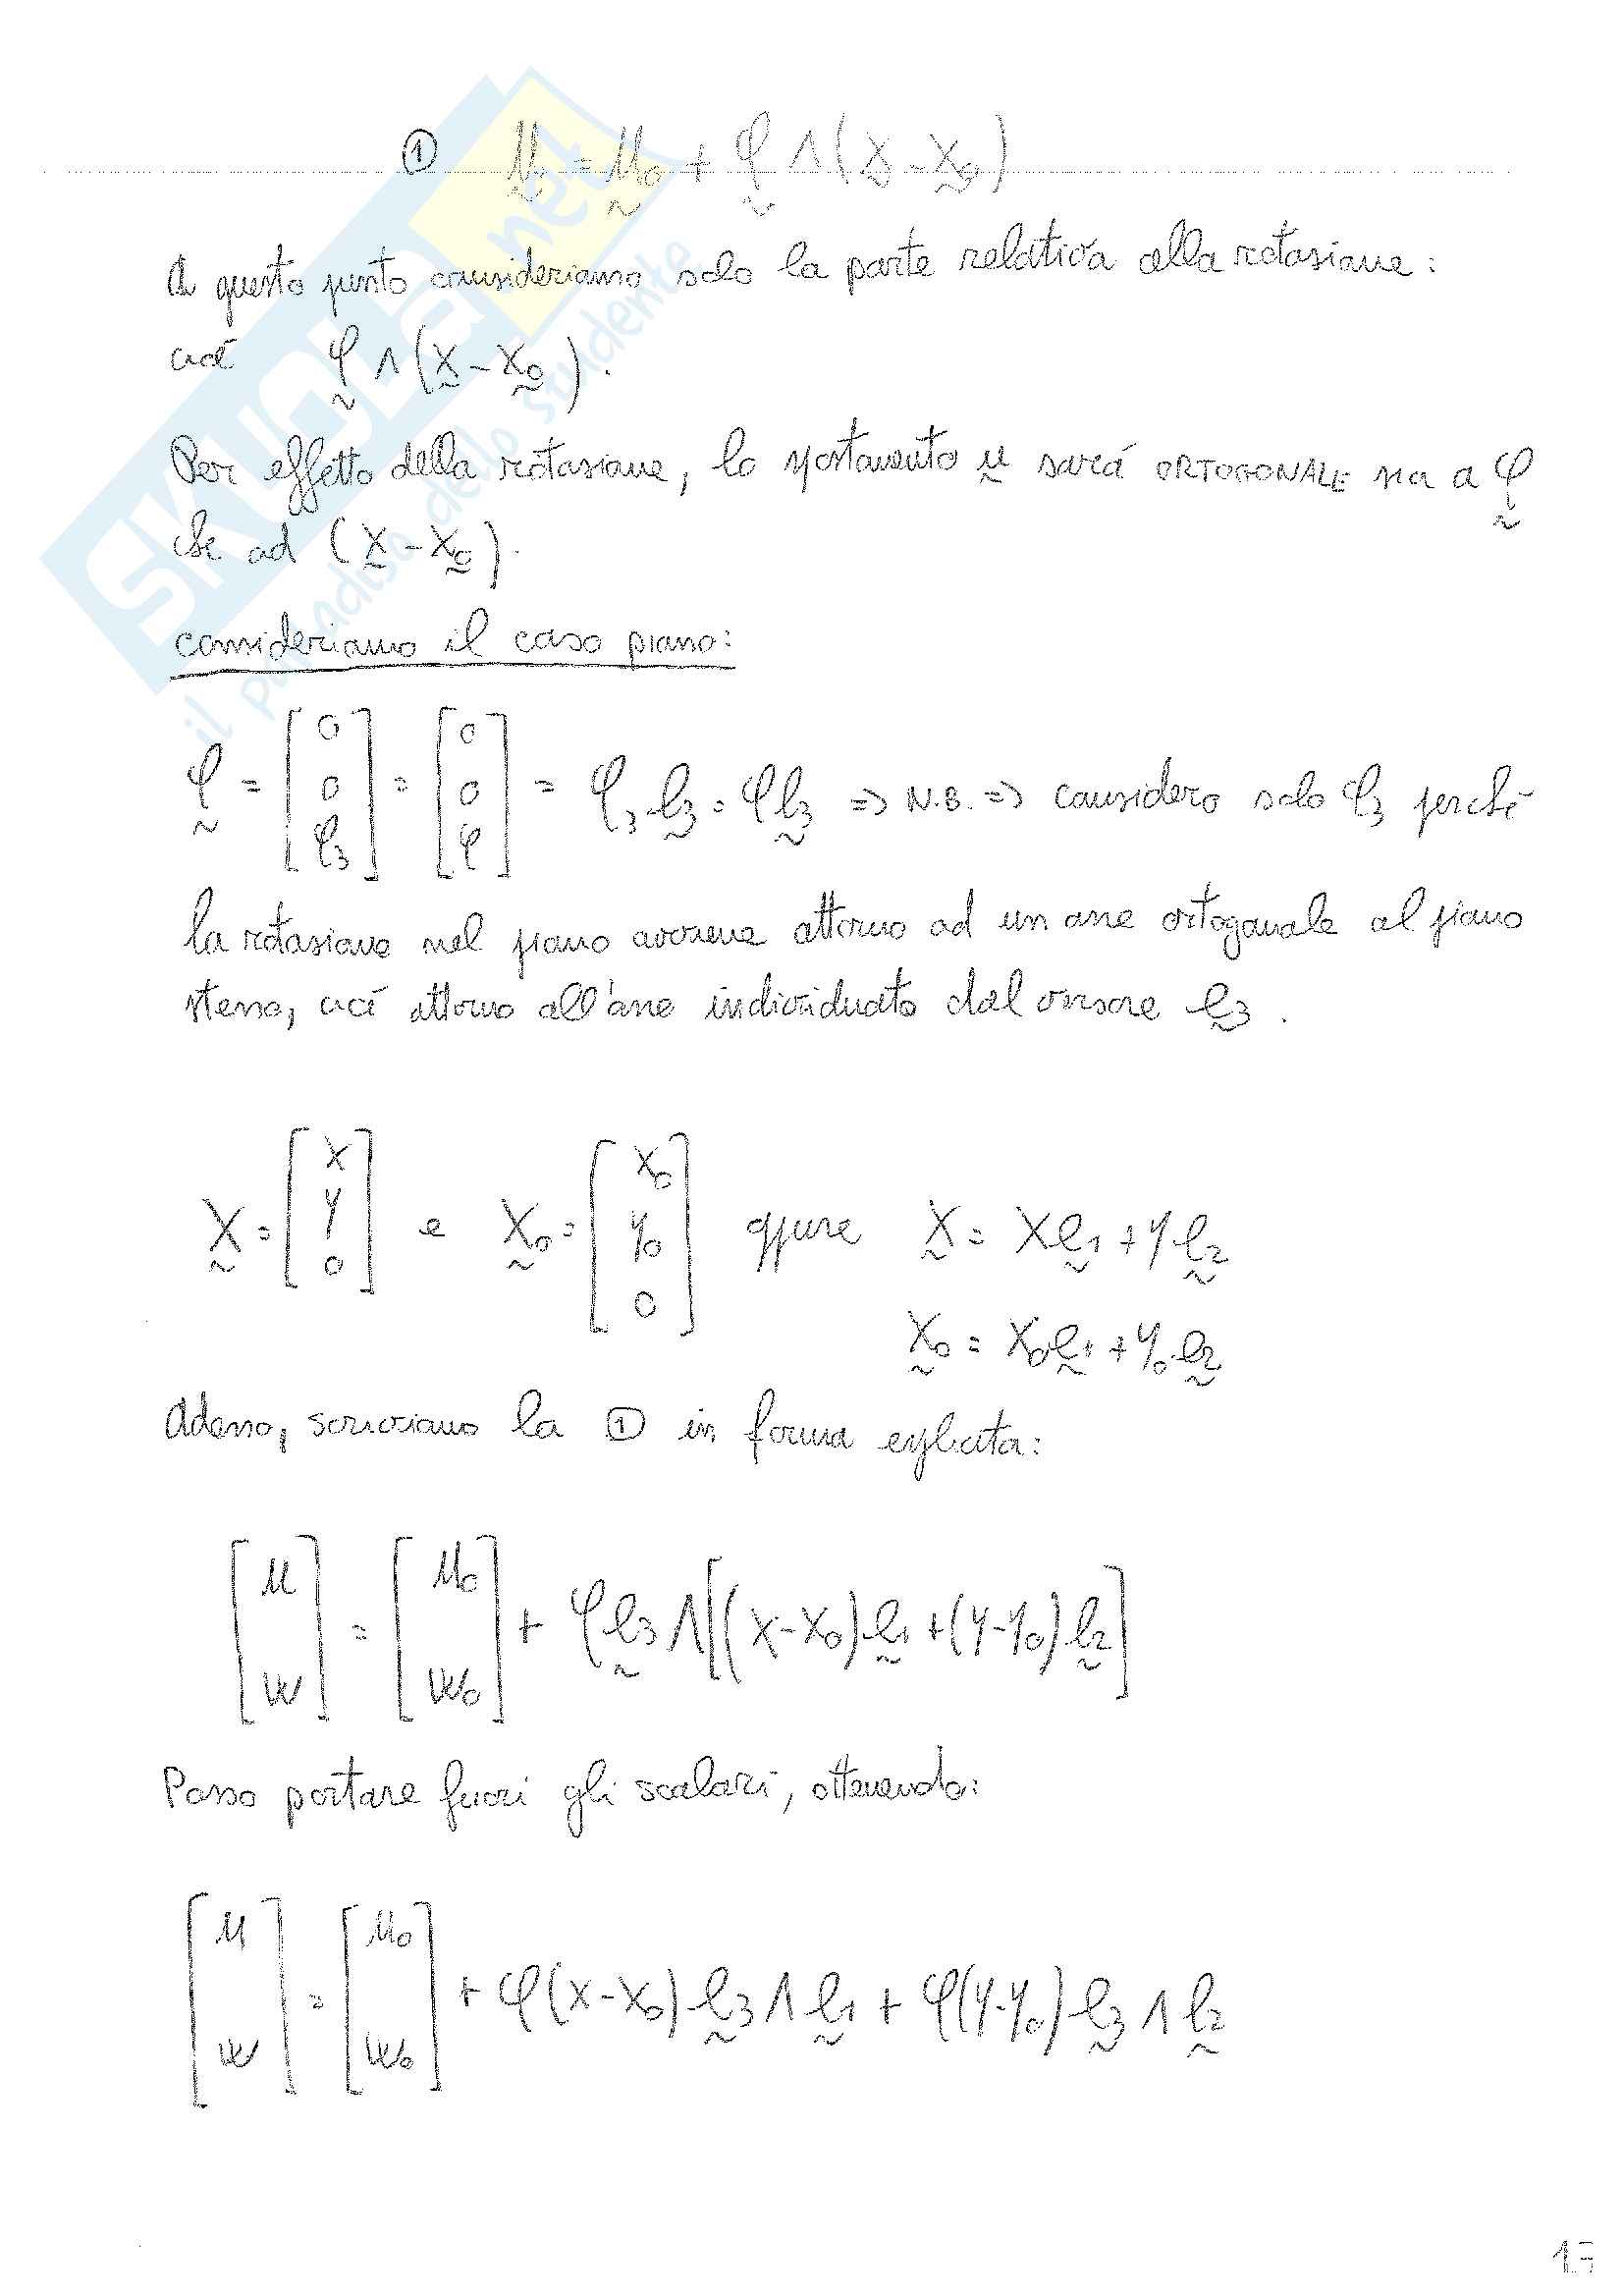 ① ṵ = ṵ₀ + φ̰ ∧ (x̰ - x̰₀)
A questo punto consideriamo solo la parte relativa alla rotazione:
cioè φ̰ ∧ (x̰ - x̰₀).
Per effetto della rotazione, lo spostamento ṵ sará ORTOGONALE sia a φ̰
che ad (x̰ - x̰₀).
consideriamo il caso piano:
φ̰ = [0 0 φ₃] = [0 0 φ] = φ₃ ḛ₃ = φ ḛ₃ => N.B. => considero solo φ₃ perché
la rotazione nel piano avviene attorno ad un asse ortogonale al piano
stesso, cioé attorno all'asse individuato dal versore ḛ₃.
x̰ = [x y 0] e x̰₀ = [x₀ y₀ 0] oppure x̰ = x ḛ₁ + y ḛ₂
x̰₀ = x₀ ḛ₁ + y₀ ḛ₂
Adesso, scriviamo la ① in forma esplicita:
[u w] = [u₀ w₀] + φ ḛ₃ ∧ [(x - x₀) ḛ₁ + (y - y₀) ḛ₂]
Posso portare fuori gli scalari, ottenendo:
[u w] = [u₀ w₀] + φ(x - x₀) ḛ₃ ∧ ḛ₁ + φ(y - y₀) ḛ₃ ∧ ḛ₂
SKUOLA.net
il paradiso dello studente